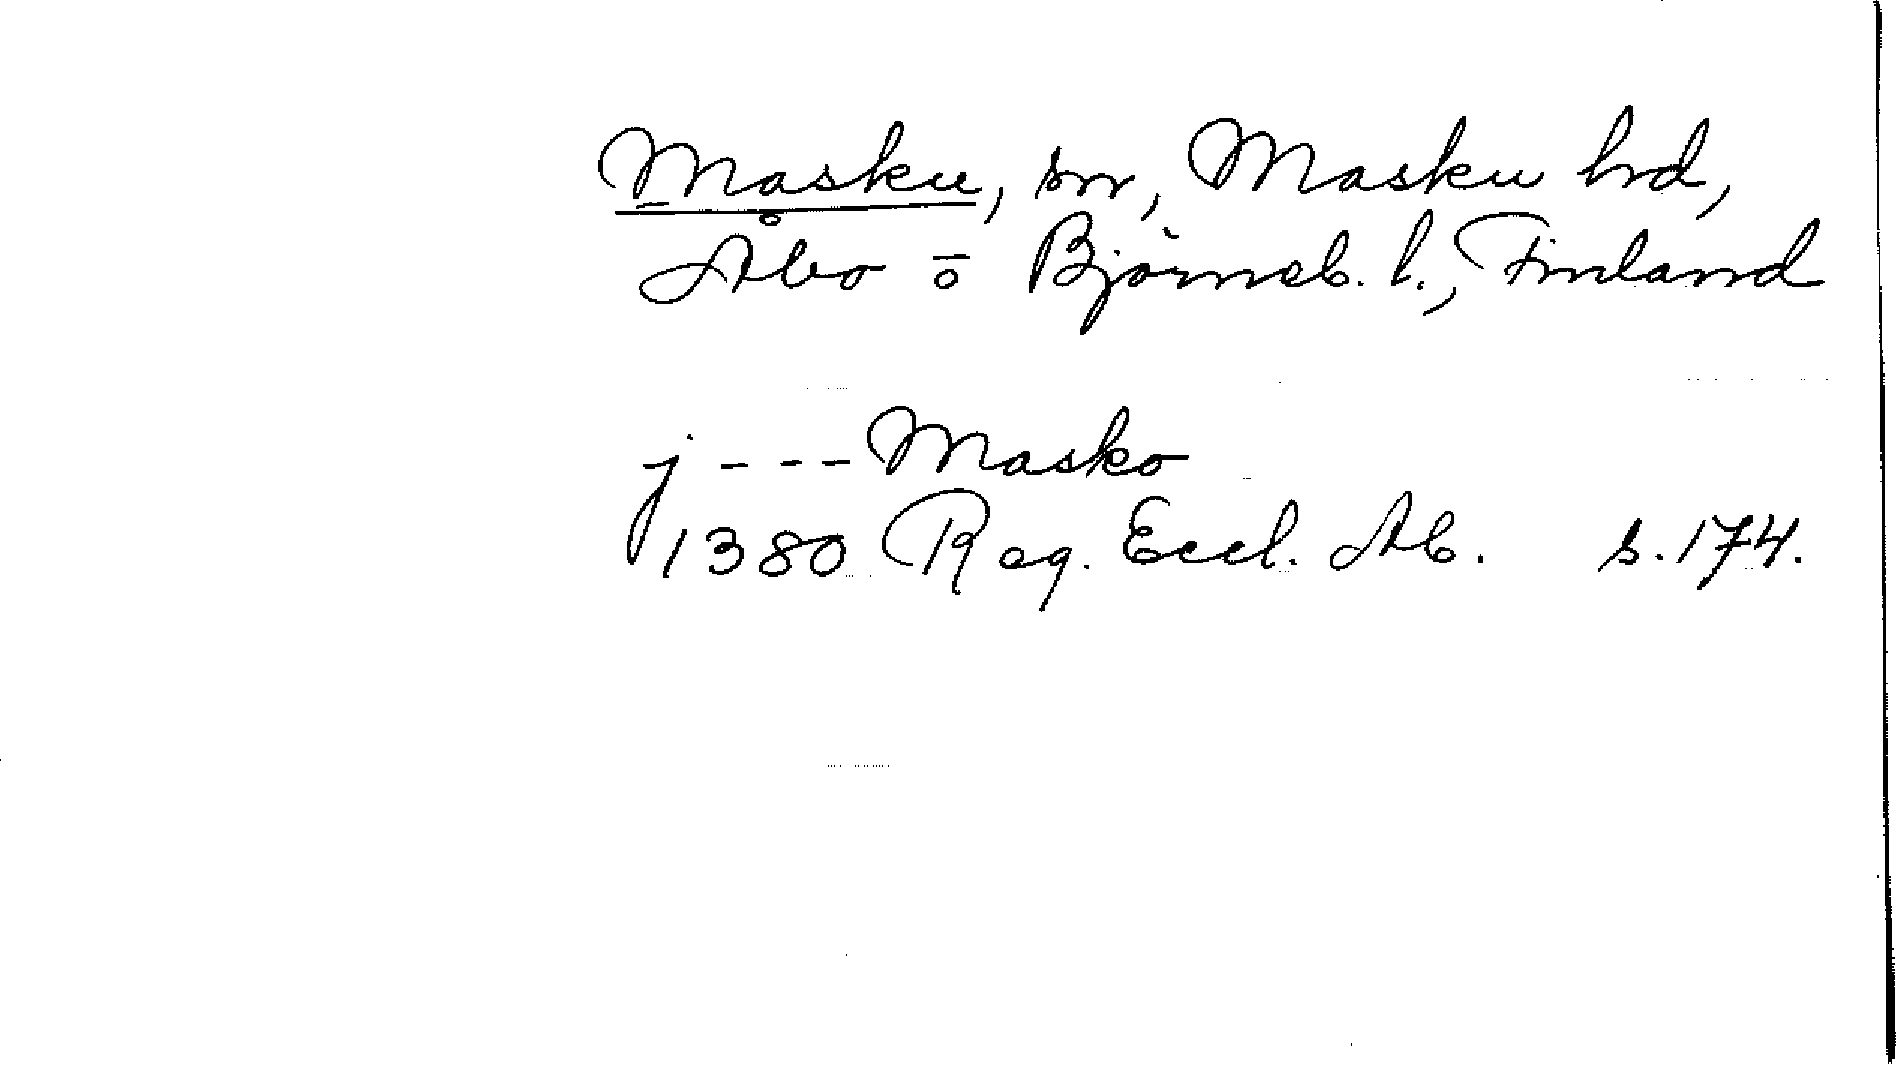 Masku, sn, Masku hrd,
Åbo o Björneb. l., Finland
j --- Masko
1380 Reg. Eccl. Ab. s. 174.